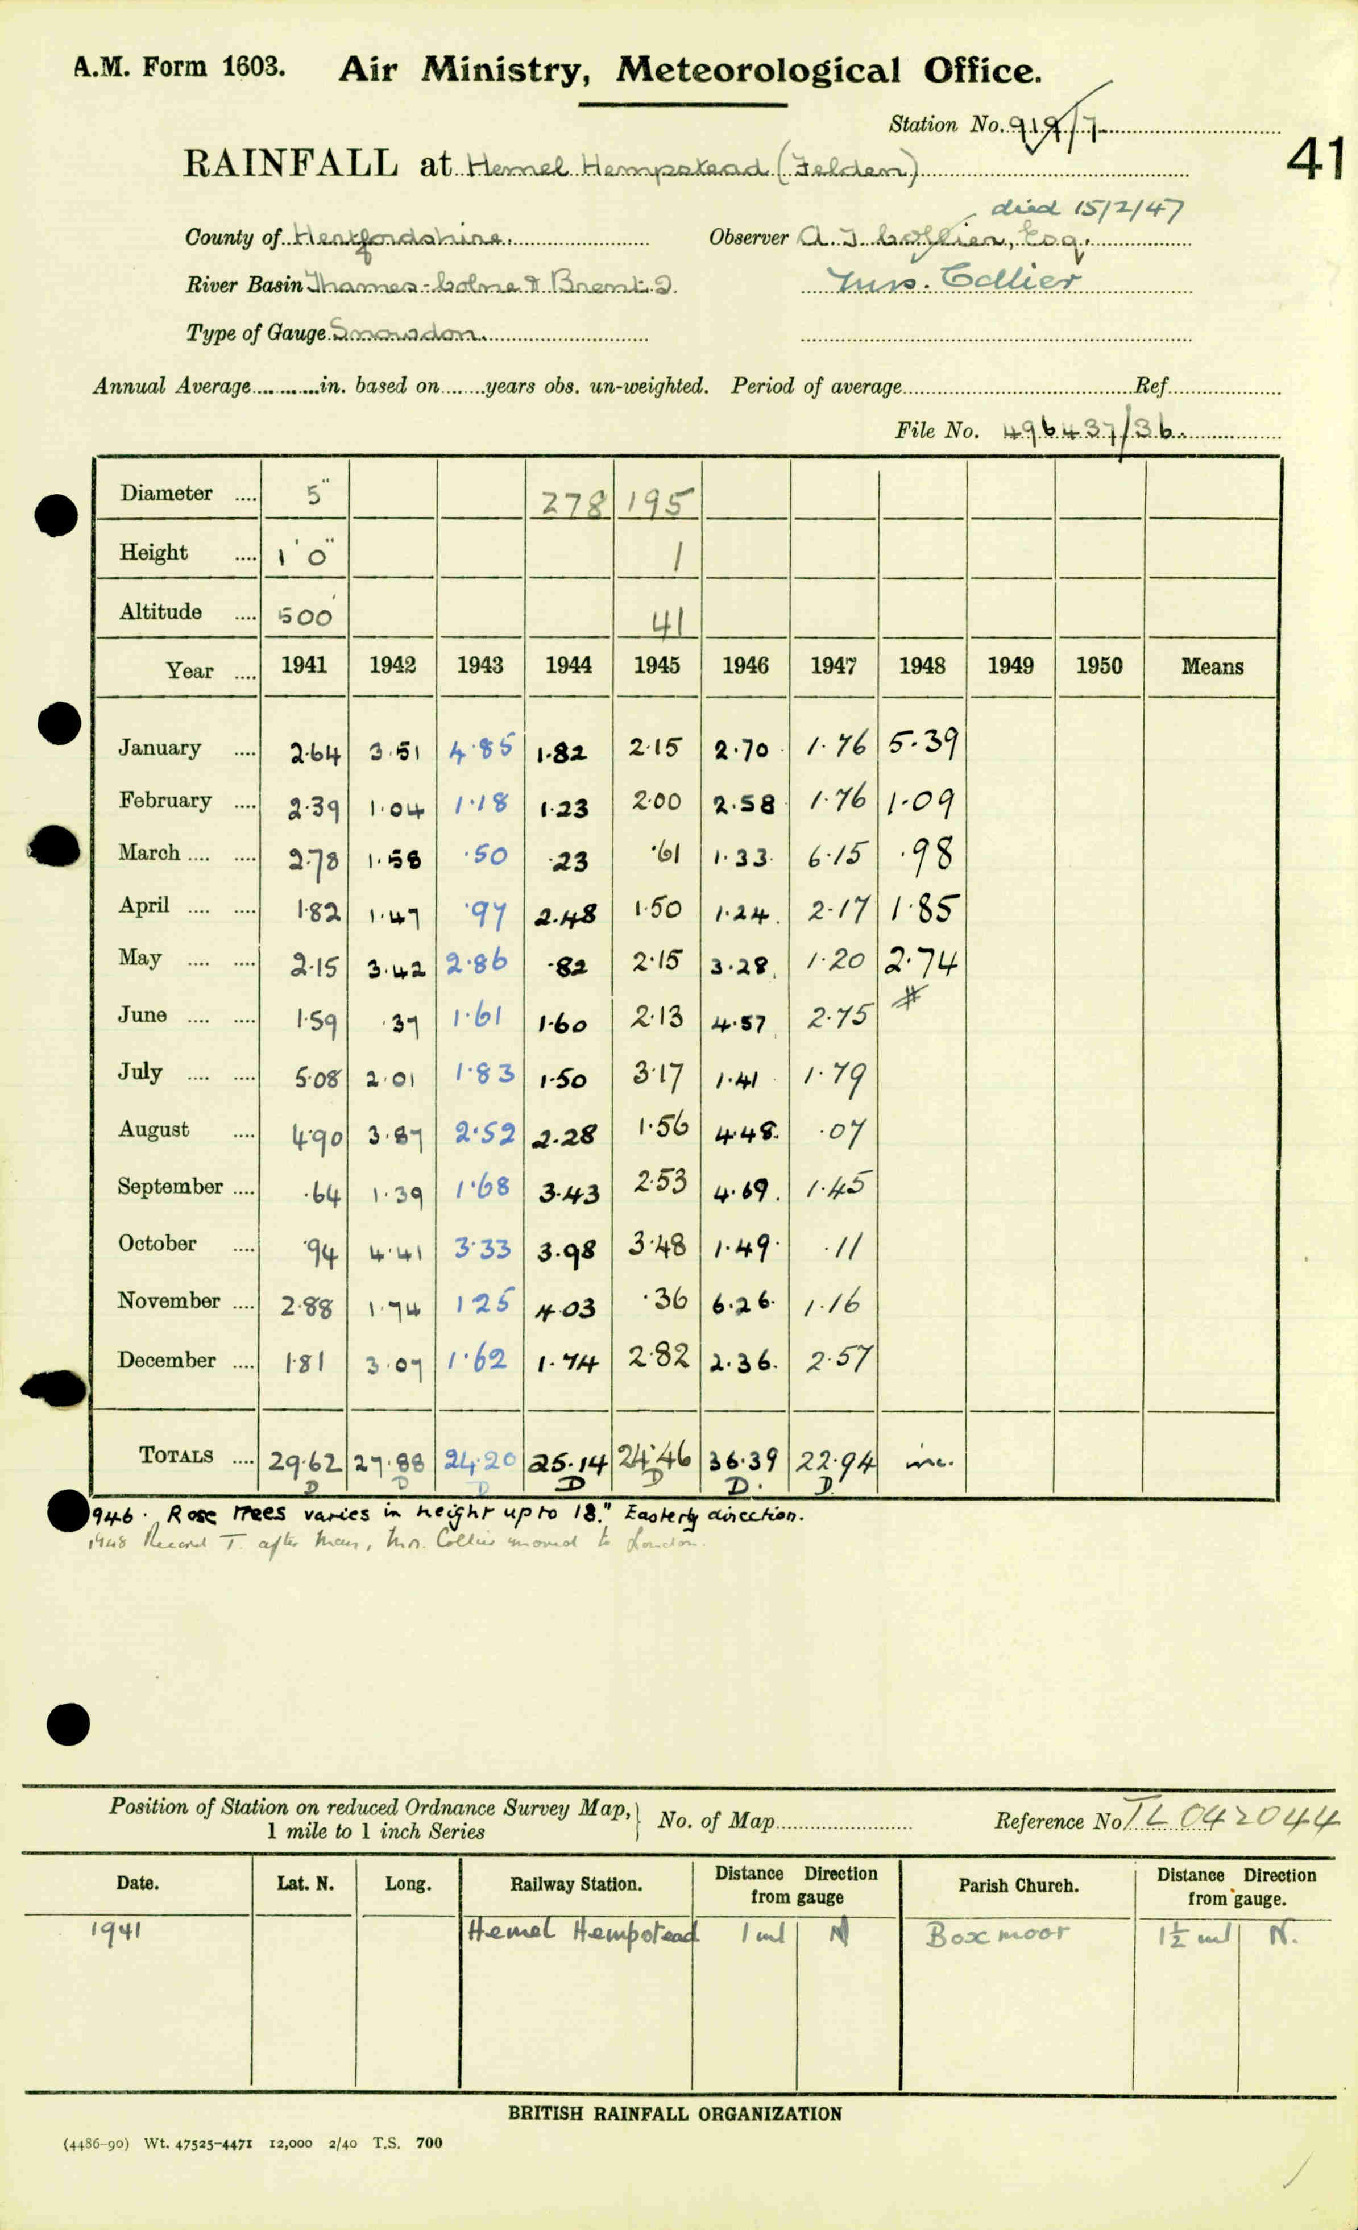 A.M. Form 1603. Air Ministry, Meteorological Office.
Station No. 919/7
RAINFALL at Hemel Hempstead (Felden)
41
died 15/2/47
County of Hertfordshire. Observer A. J. Collier, Esq.
River Basin Thames-Colne & Brent. Mrs. Collier
Type of Gauge Snowdon.
Annual Average in. based on years obs. un-weighted. Period of average Ref.
File No. 496437/36.
Diameter .... 5" 278 195
Height .... 1' 0" 1
Altitude .... 500' 41
Year .... 1941 1942 1943 1944 1945 1946 1947 1948 1949 1950 Means
January .... 2.64 3.51 4.85 1.82 2.15 2.70 1.76 5.39
February .... 2.39 1.04 1.18 1.23 2.00 2.58 1.76 1.09
March .... .... 2.78 1.58 .50 .23 .61 1.33 6.15 .98
April .... .... 1.82 1.47 .97 2.48 1.50 1.24 2.17 1.85
May .... .... 2.15 3.42 2.86 .82 2.15 3.28 1.20 2.74
June .... .... 1.59 .37 1.61 1.60 2.13 4.57 2.75 #
July .... .... 5.08 2.01 1.83 1.50 3.17 1.41 1.79
August .... 4.90 3.87 2.52 2.28 1.56 4.48 .07
September .... .64 1.39 1.68 3.43 2.53 4.69 1.45
October .... .94 4.41 3.33 3.98 3.48 1.49 .11
November .... 2.88 1.74 1.25 4.03 .36 6.26 1.16
December .... 1.81 3.07 1.62 1.74 2.82 2.36 2.57
TOTALS .... 29.62 27.88 24.20 25.14 24.46 36.39 22.94 inc.
D D D D D D. D
946. Rose trees varies in height up to 18." Easterly direction.
1948 Record T. after May, Mrs. Collier moved to London.
Position of Station on reduced Ordnance Survey Map, 1 mile to 1 inch Series No. of Map Reference No TL 042044
Date. Lat. N. Long. Railway Station. Distance Direction from gauge Parish Church. Distance Direction from gauge.
1941 Hemel Hempstead 1 ml N Boxmoor 1½ ml N.
BRITISH RAINFALL ORGANIZATION
(4486-90) Wt. 47525-4471 12,000 2/40 T.S. 700